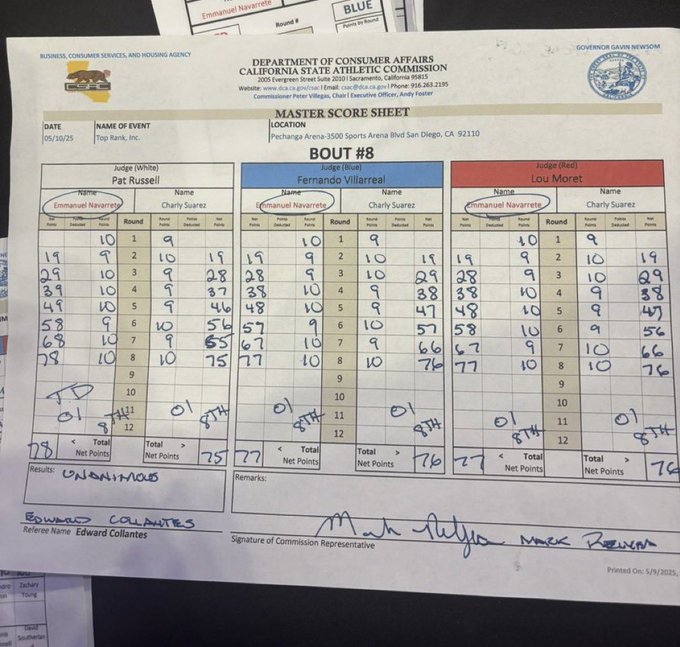 Emmanuel Navarrete
Round #
BLUE
Points by Round
BUSINESS, CONSUMER SERVICES, AND HOUSING AGENCY
GOVERNOR GAVIN NEWSOM
DEPARTMENT OF CONSUMER AFFAIRS
CALIFORNIA STATE ATHLETIC COMMISSION
2005 Evergreen Street Suite 2010 | Sacramento, California 95815
Website: www.dca.ca.gov/csac | Email: csac@dca.ca.gov | Phone: 916.263.2195
Commissioner Peter Villegas, Chair | Executive Officer, Andy Foster
CSAC
MASTER SCORE SHEET
DATE NAME OF EVENT LOCATION
05/10/25 Top Rank, Inc. Pechanga Arena-3500 Sports Arena Blvd San Diego, CA 92110
BOUT #8
Judge (White) Judge (Blue) Judge (Red)
Pat Russell Fernando Villarreal Lou Moret
Name Name Name Name Name Name
Emmanuel Navarrete Charly Suarez Emmanuel Navarrete Charly Suarez Emmanuel Navarrete Charly Suarez
Net Points Points Deducted Round Points Round Round Points Points Deducted Net Points Net Points Points Deducted Round Points Round Round Points Points Deducted Net Points Net Points Points Deducted Round Points Round Round Points Points Deducted Net Points
10 1 9 10 1 9 10 1 9
19 9 2 10 19 19 9 2 10 19 19 9 2 10 19
29 10 3 9 28 28 9 3 10 29 28 9 3 10 29
39 10 4 9 37 38 10 4 9 38 38 10 4 9 38
49 10 5 9 46 48 10 5 9 47 48 10 5 9 47
58 9 6 10 56 57 9 6 10 57 58 10 6 9 56
68 10 7 9 65 67 10 7 9 66 67 9 7 10 66
78 10 8 10 75 77 10 8 10 76 77 10 8 10 76
9 9 9
TD 10 10 10
01 8TH 11 01 8TH 01 8TH 11 01 8TH 01 8TH 11 01 8TH
12 12 12
78 < Total Net Points Total > Net Points 75 77 < Total Net Points Total > Net Points 76 77 < Total Net Points Total > Net Points 76
Results: UNANIMOUS
Remarks:
EDWARD COLLANTES
Referee Name Edward Collantes
Signature of Commission Representative
MARK
Printed On: 5/9/2025,
Zachary
Young
David
Southverian